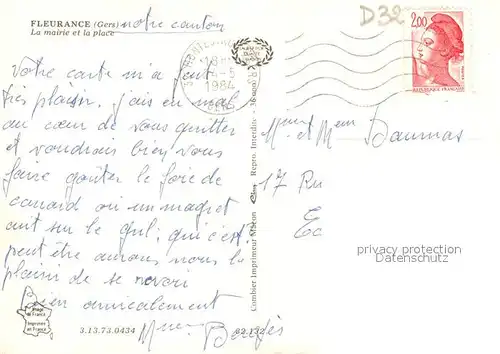 FLEURANCE (Gers) notre canton
La mairie et la place
D32
18 H
4-5
1984
GERS
2,00
REPUBLIQUE FRANÇAISE
Votre carte m'a fait
très plaisir, j'ais eu mal
au cœur de vous quitter
et voudrais bien vous
faire goûter le foie de
canard ou un magret
cuit sur le gril, qui c'est?
peut être aurons nous le
plaisir de se revoir
Bien amicalement
Mme
Mme et Mr Daumas
17 Ru
Ec
privacy protection
Combier Imprimeur Mâcon Cim Repro. Interdite
Image de France
Imprimée en France
3.13.73.0434
82.132